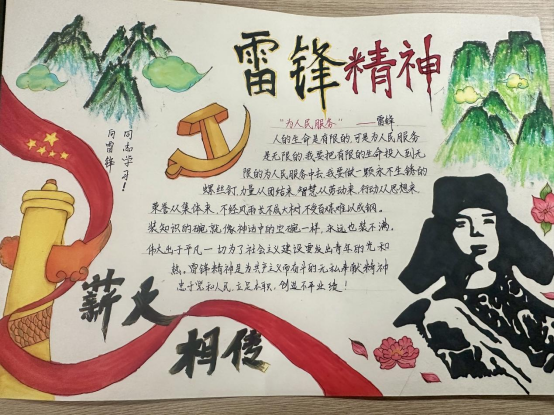 雷锋精神
"为人民服务" ——雷锋
人的生命是有限的,可是为人民服务
是无限的,我要把有限的生命投入到无
限的为人民服务中去,我要做一颗永不生锈的
螺丝钉,力量从团结来,智慧从劳动来,行动从思想来
荣誉从集体来,不经风雨长不成大树,不受百炼难以成钢。
装知识的碗,就像神话中的宝碗一样,永远也装不满。
伟大出于平凡,一切为了社会主义建设重发出青年的光和
热,雷锋精神是为共产主义而奋斗的无私奉献精神
忠于党和人民,立足本职,创造不平业绩!
向雷锋
同志学习!
薪火
相传